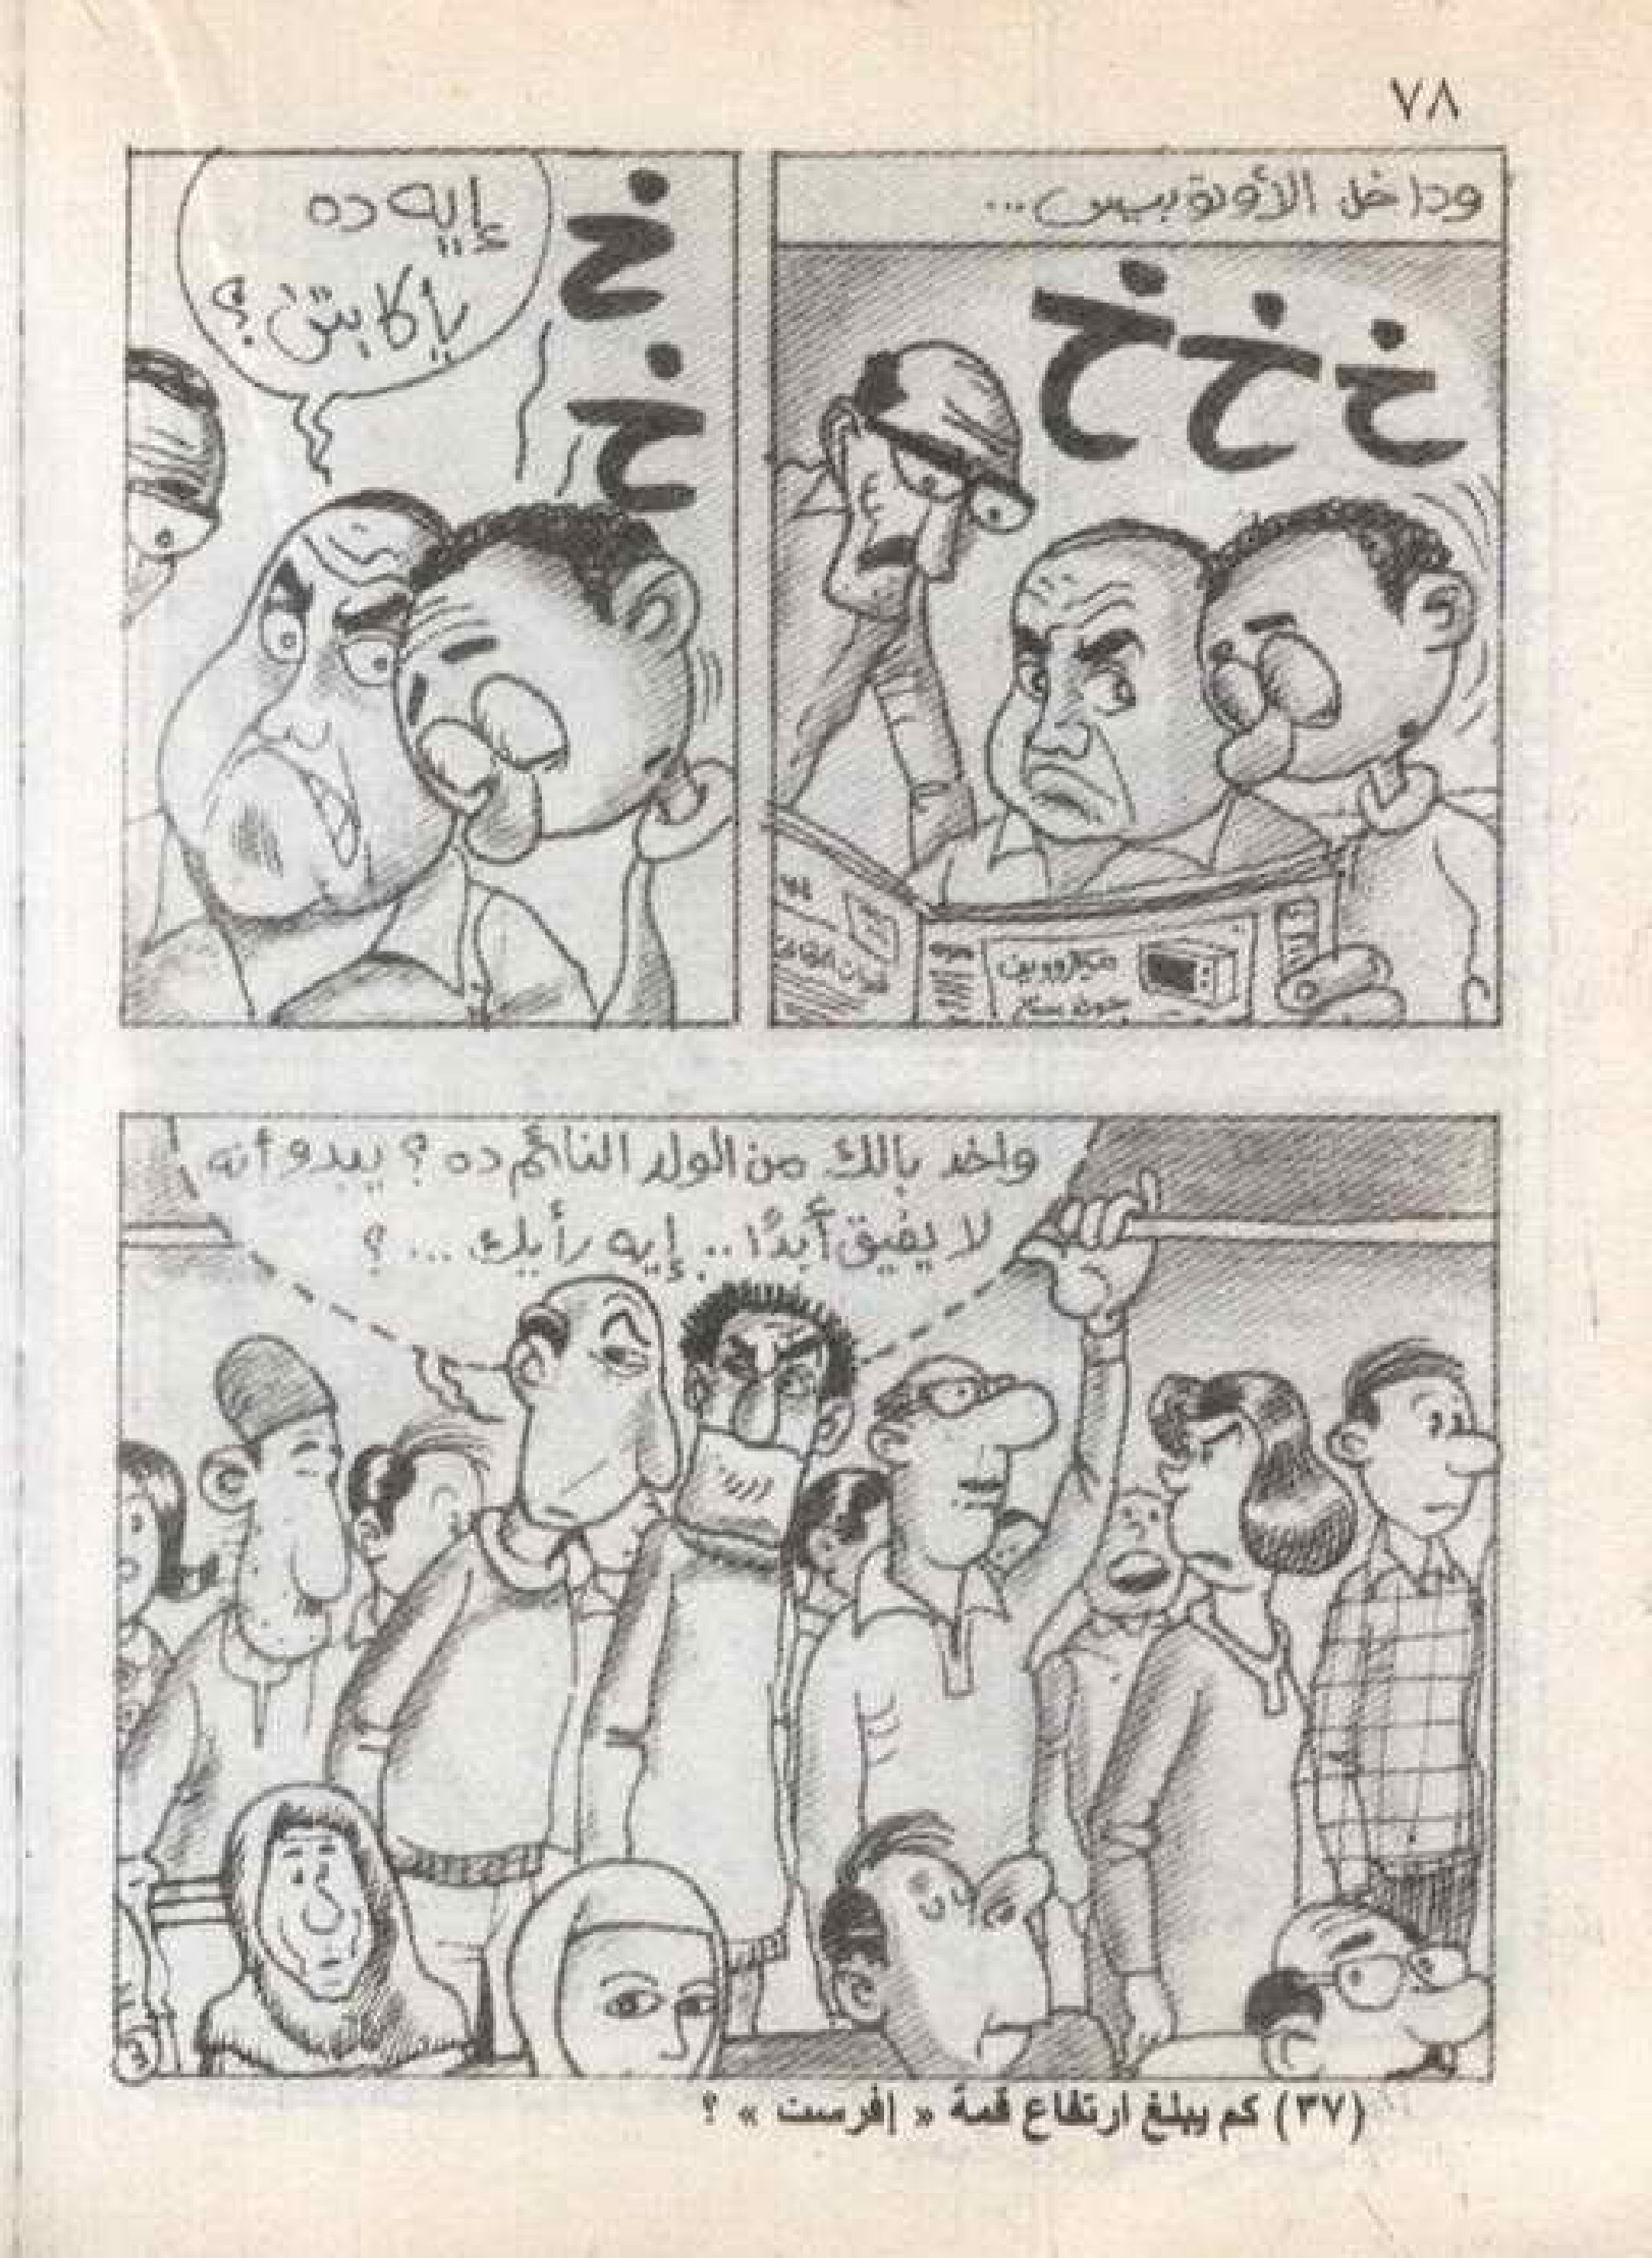 ٧٨
وداخل الأوتوبيس...
خ خ خ
ميكروويف
خ
خ
إيه ده
يا كابتن؟
واخد بالك من الولد النائم ده؟ يبدو أنه
لا يفيق أبدًا.. إيه رأيك...؟
(٣٧) كم يبلغ ارتفاع قمة « إفرست » ؟